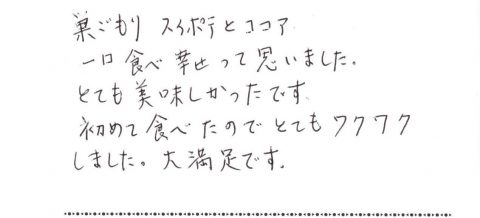 巣ごもり スイポテとココア
一口食べ幸せって思いました。
とても美味しかったです
初めて食べたのでとてもワクワク
しました。大満足です.